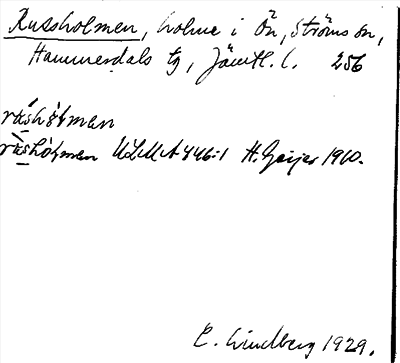 Russholmen, holme i Ön, Ströms sn,
Hammerdals tg, Jämtl. l. 256
rúshó̀ɫmen
rùshòɫmen ULMA 446:1 H. Geijer 1910.
E. Lindberg 1929.